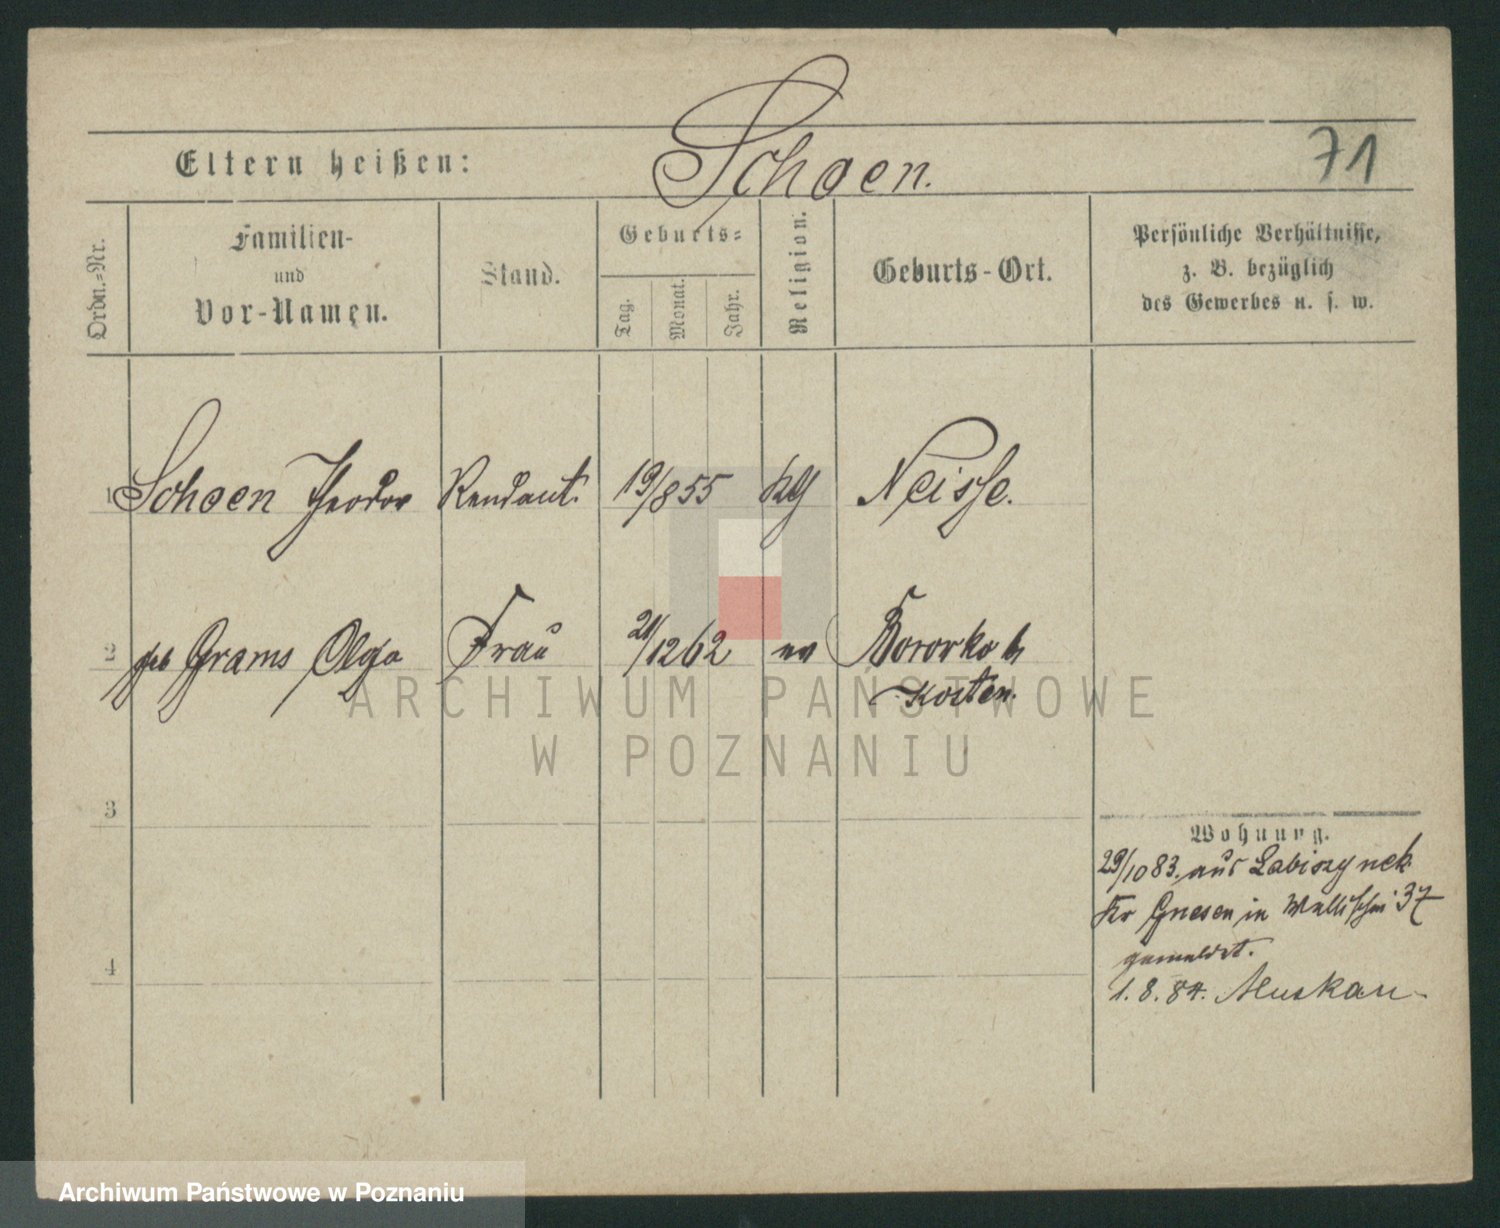 Schoen.
71
Eltern heißen:
Ordn.-Nr.
Familien-
und
Vor-Namen.
Stand.
Geburts-
Tag.
Monat.
Jahr.
Religion.
Geburts-Ort.
Persönliche Verhältnisse,
z. B. bezüglich
des Gewerbes u. s. w.
1 Schoen Theodor Rendant. 19/8 55 Neisse.
2 geb Grams Olga Frau 21/12 62 ev Borowko b
Kosten.
ARCHIWUM PAŃSTWOWE
W POZNANIU
3
Wohnung.
29/10 83. aus Labiszynek
Kr Gnesen in Wallischei 37
gemeldet.
4
1. 8. 84. Muskau
Archiwum Państwowe w Poznaniu